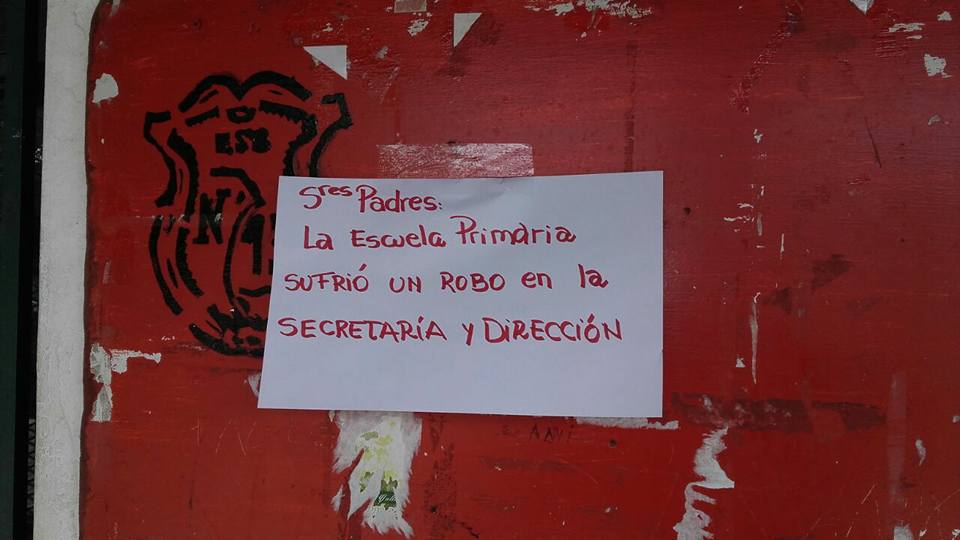 ESB
N
Sres Padres:
La Escuela Primaria
SUFRIÓ UN ROBO en la
SECRETARÍA Y DIRECCIÓN